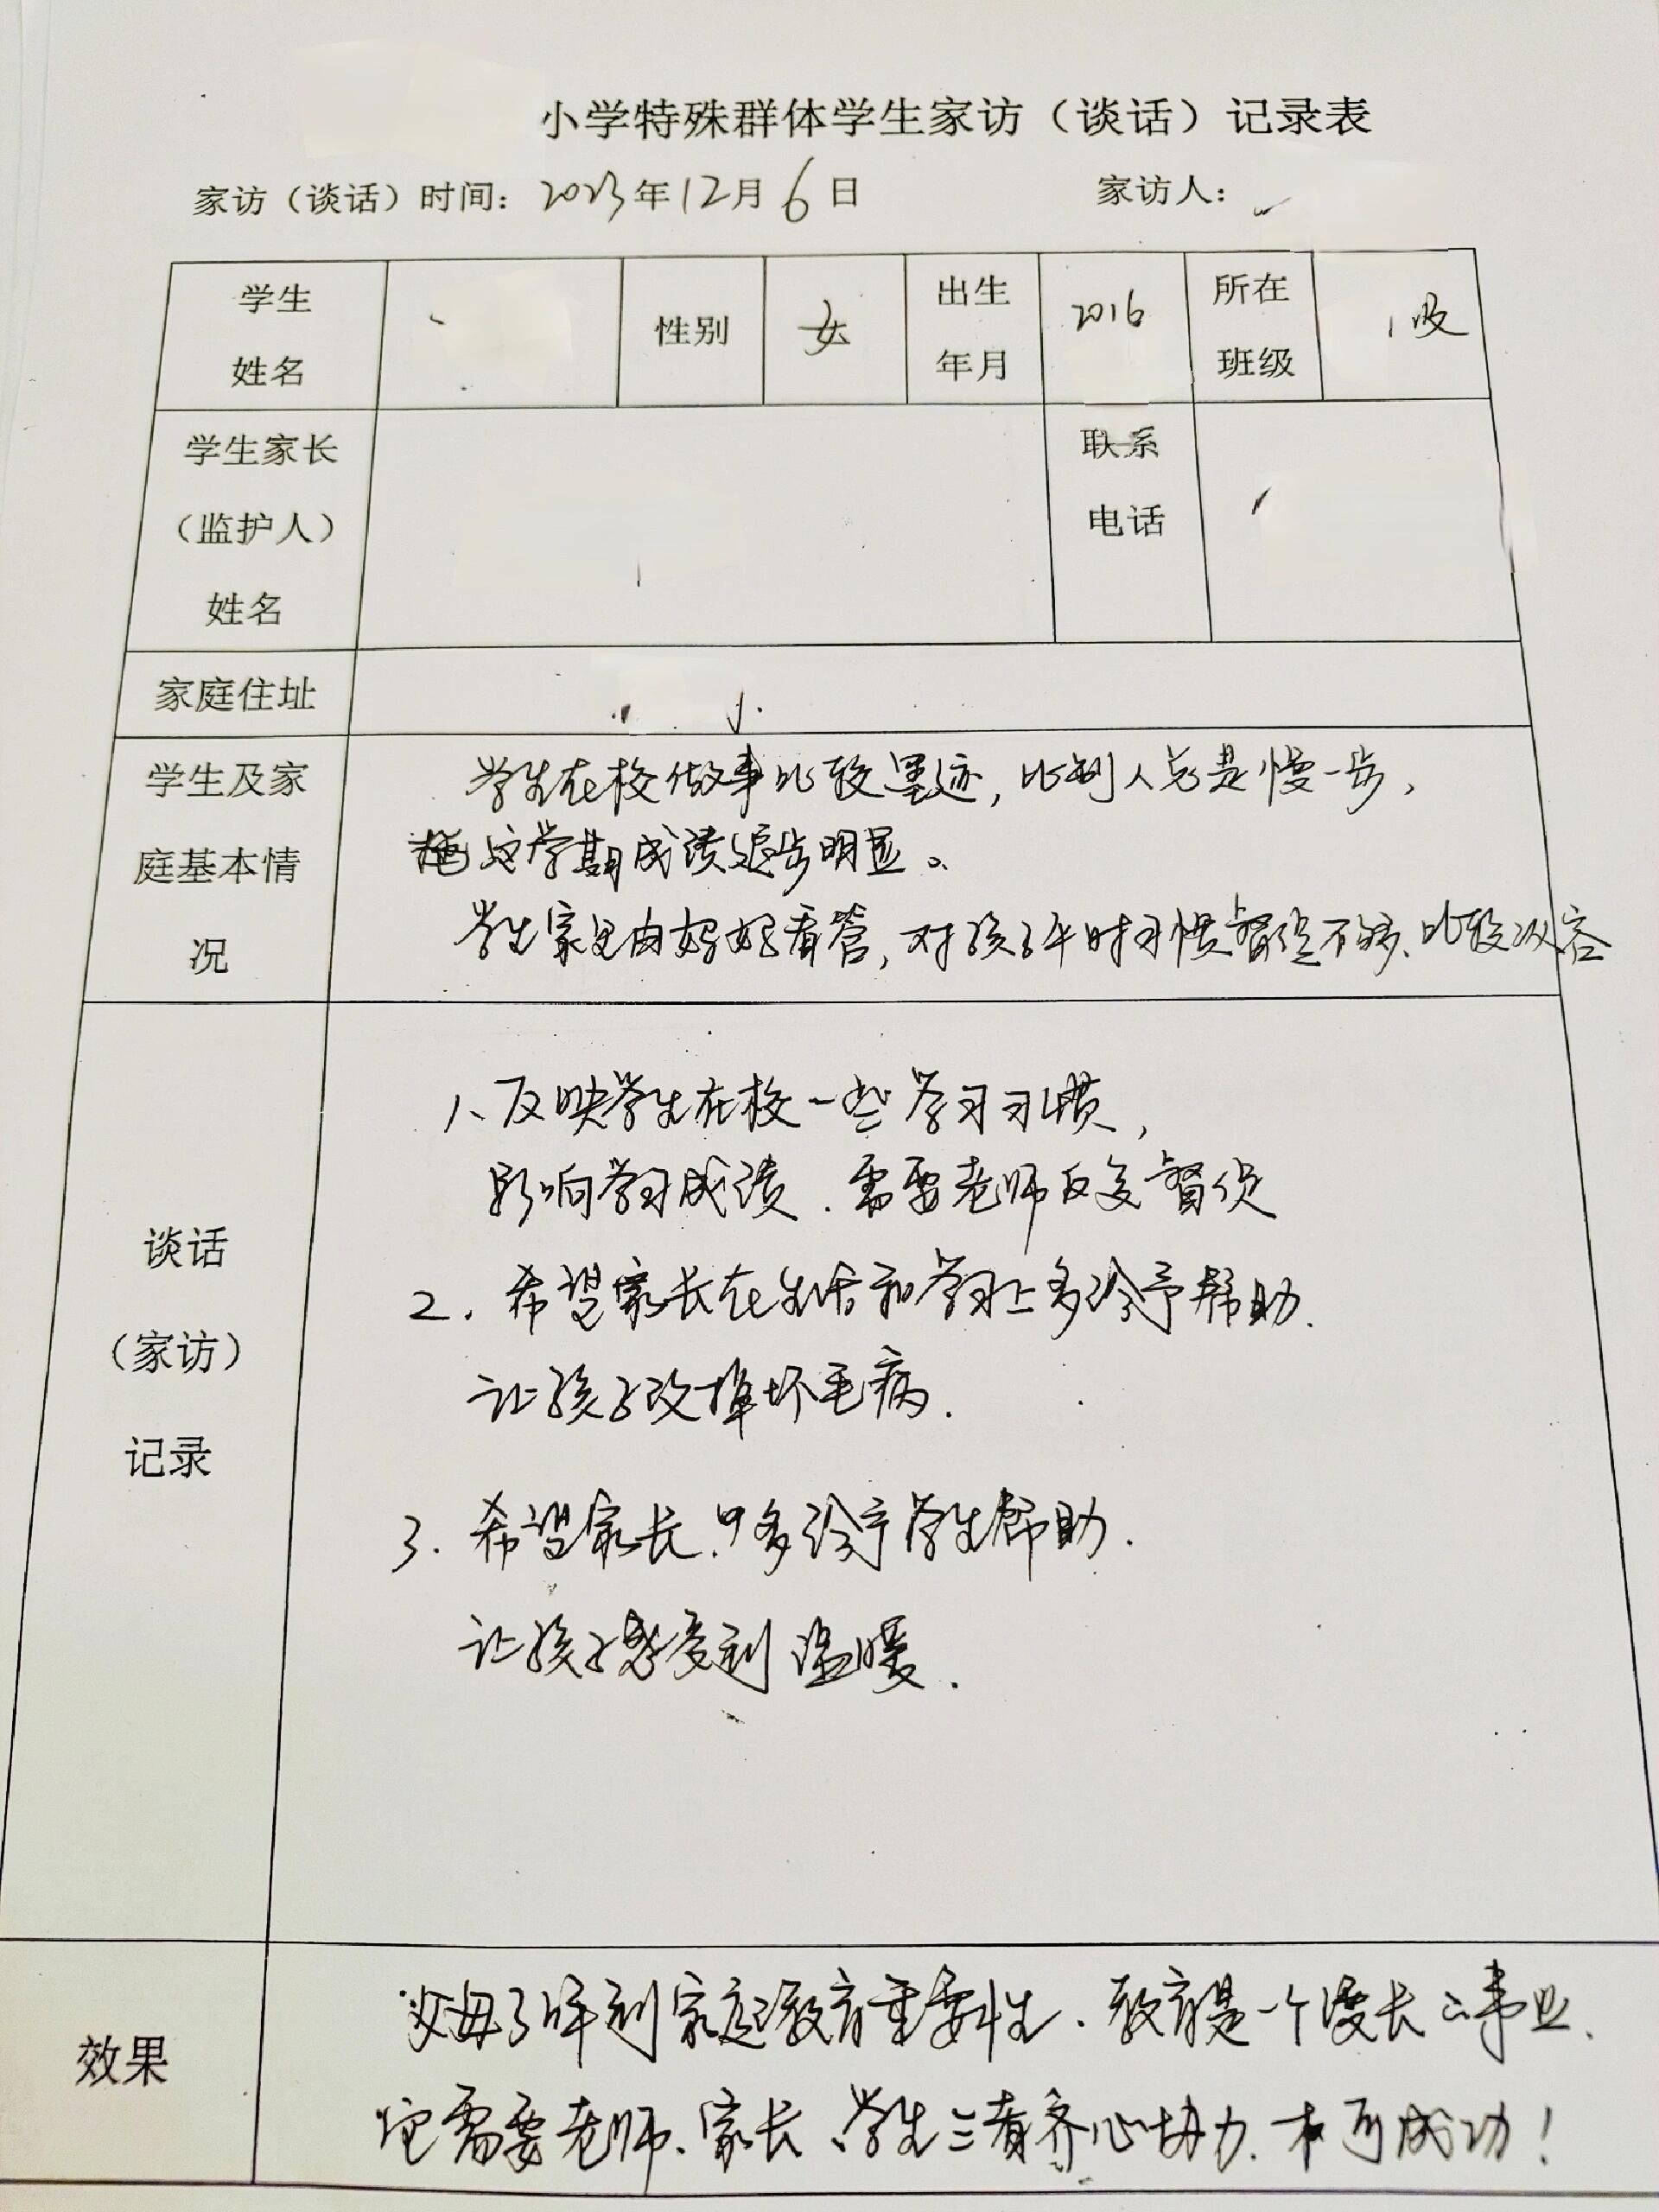 小学特殊群体学生家访（谈话）记录表
家访（谈话）时间：2023年12月6日 家访人：
学生姓名 性别 女 出生年月 2016 所在班级 1级
学生家长（监护人）姓名 联系电话
家庭住址
学生及家庭基本情况
学生在校做事比较墨迹，比别人总是慢一步，
这学期成绩退步明显。
学生家里由妈妈看管，对孩子平时习惯督促不够、比较从容
谈话（家访）记录
1、反映学生在校一些学习习惯，
影响学习成绩．需要老师反复督促
2．希望家长在生活和学习上多给予帮助．
让孩子改掉坏毛病．
3．希望家长 多给予学生帮助．
让孩子感受到温暖．
效果
父母了解到家庭教育重要性．教育是一个漫长的事业、
它需要老师、家长、学生三者齐心协力．才可成功！